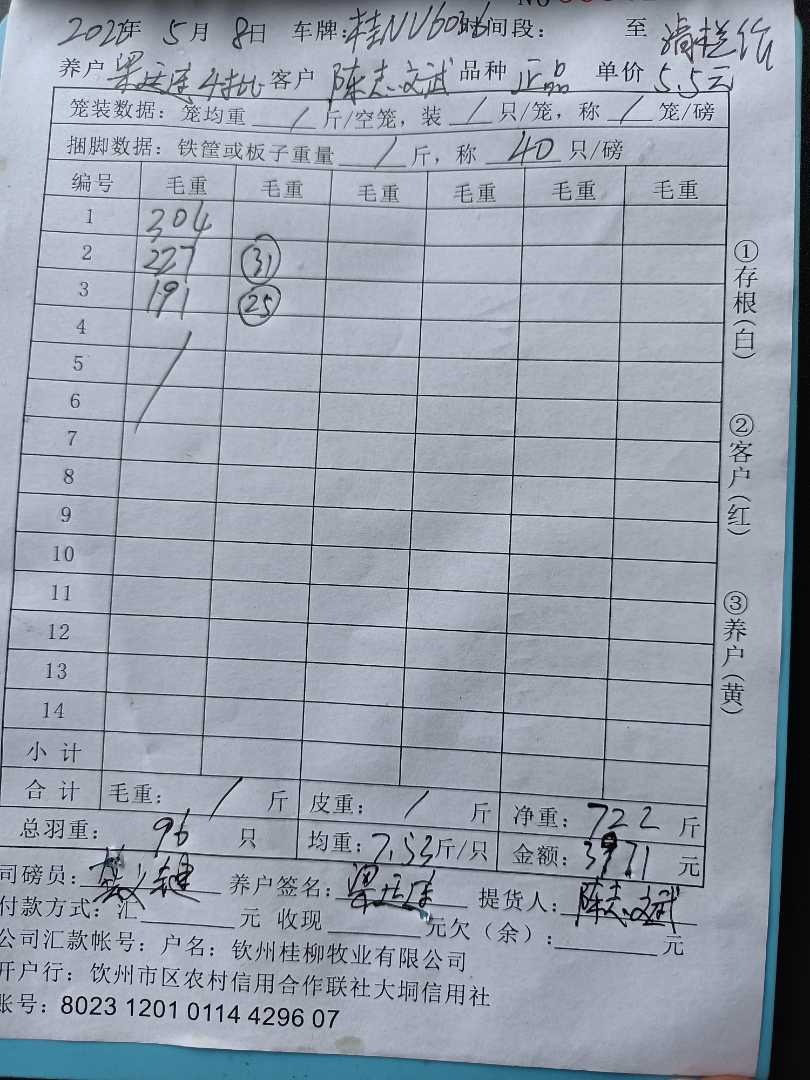 NO
202 年 5 月 8 日 车牌: 桂NV6036 时间段: 至 清栏价
养户 梁 4批 客户 陈志武 品种 正品 单价 5.5元
笼装数据: 笼均重 / 斤/空笼, 装 / 只/笼, 称 / 笼/磅
捆脚数据: 铁筐或板子重量 / 斤, 称 40 只/磅
编号 毛重 毛重 毛重 毛重 毛重 毛重
1 304
2 227 31
3 191 25
4
5
6
7
8
9
10
11
12
13
14
小计
合计 毛重: / 斤 皮重: / 斤 净重: 722 斤
总羽重: 96 只 均重: 7.53斤/只 金额: 3971 元
司磅员: 养户签名: 梁 提货人: 陈志武
付款方式: 汇 元 收现 元欠(余): 元
公司汇款帐号: 户名: 钦州桂柳牧业有限公司
开户行: 钦州市区农村信用合作联社大垌信用社
账号: 8023 1201 0114 4296 07
①存根(白) ②客户(红) ③养户(黄)